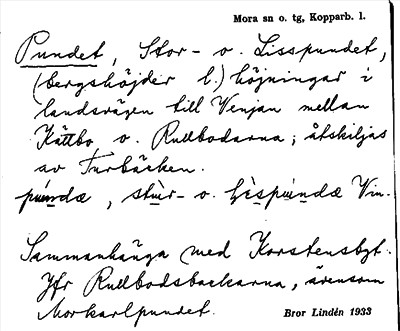 Mora sn o. tg, Kopparb. l.
Pundet, Stor- o. Lisspundet,
(bergshöjder l.) höjningar i
landsvägen till Venjan mellan
Kättbo o. Rullbodarna; åtskiljas
av Turbäcken.
pundæ, stur- o. lispundæ Vin.
Sammanhänga med Korstensbgt.
Jfr Rullbodsbackarna, ävensom
Morkarlpundet.
Bror Lindén 1933